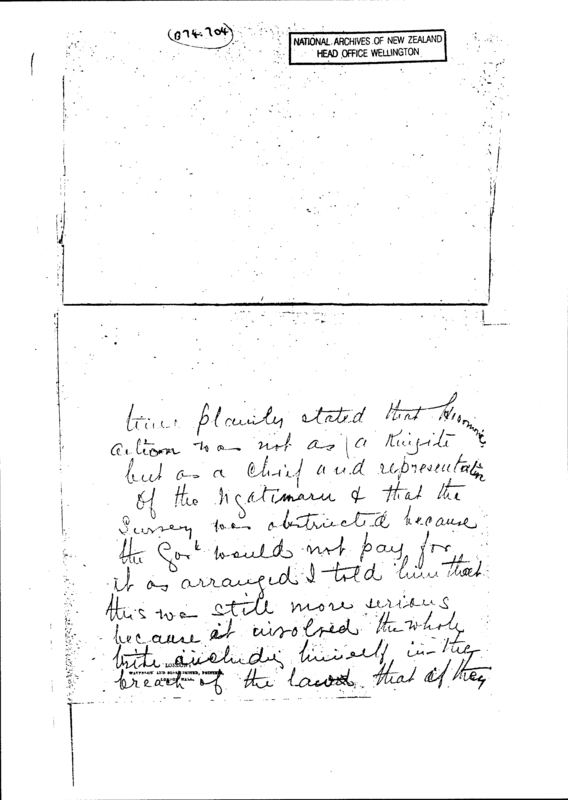 (B74.704)
NATIONAL ARCHIVES OF NEW ZEALAND
HEAD OFFICE WELLINGTON
plainly stated that
action was not as a Kingite
but as a Chief and representative
of the Ngatimaru & that the
Survey was obstructed because
the Govt would not pay for
it as arranged I told him that
this was still more serious
because it involved the whole
tribe including himself in the
breach of the law that if they